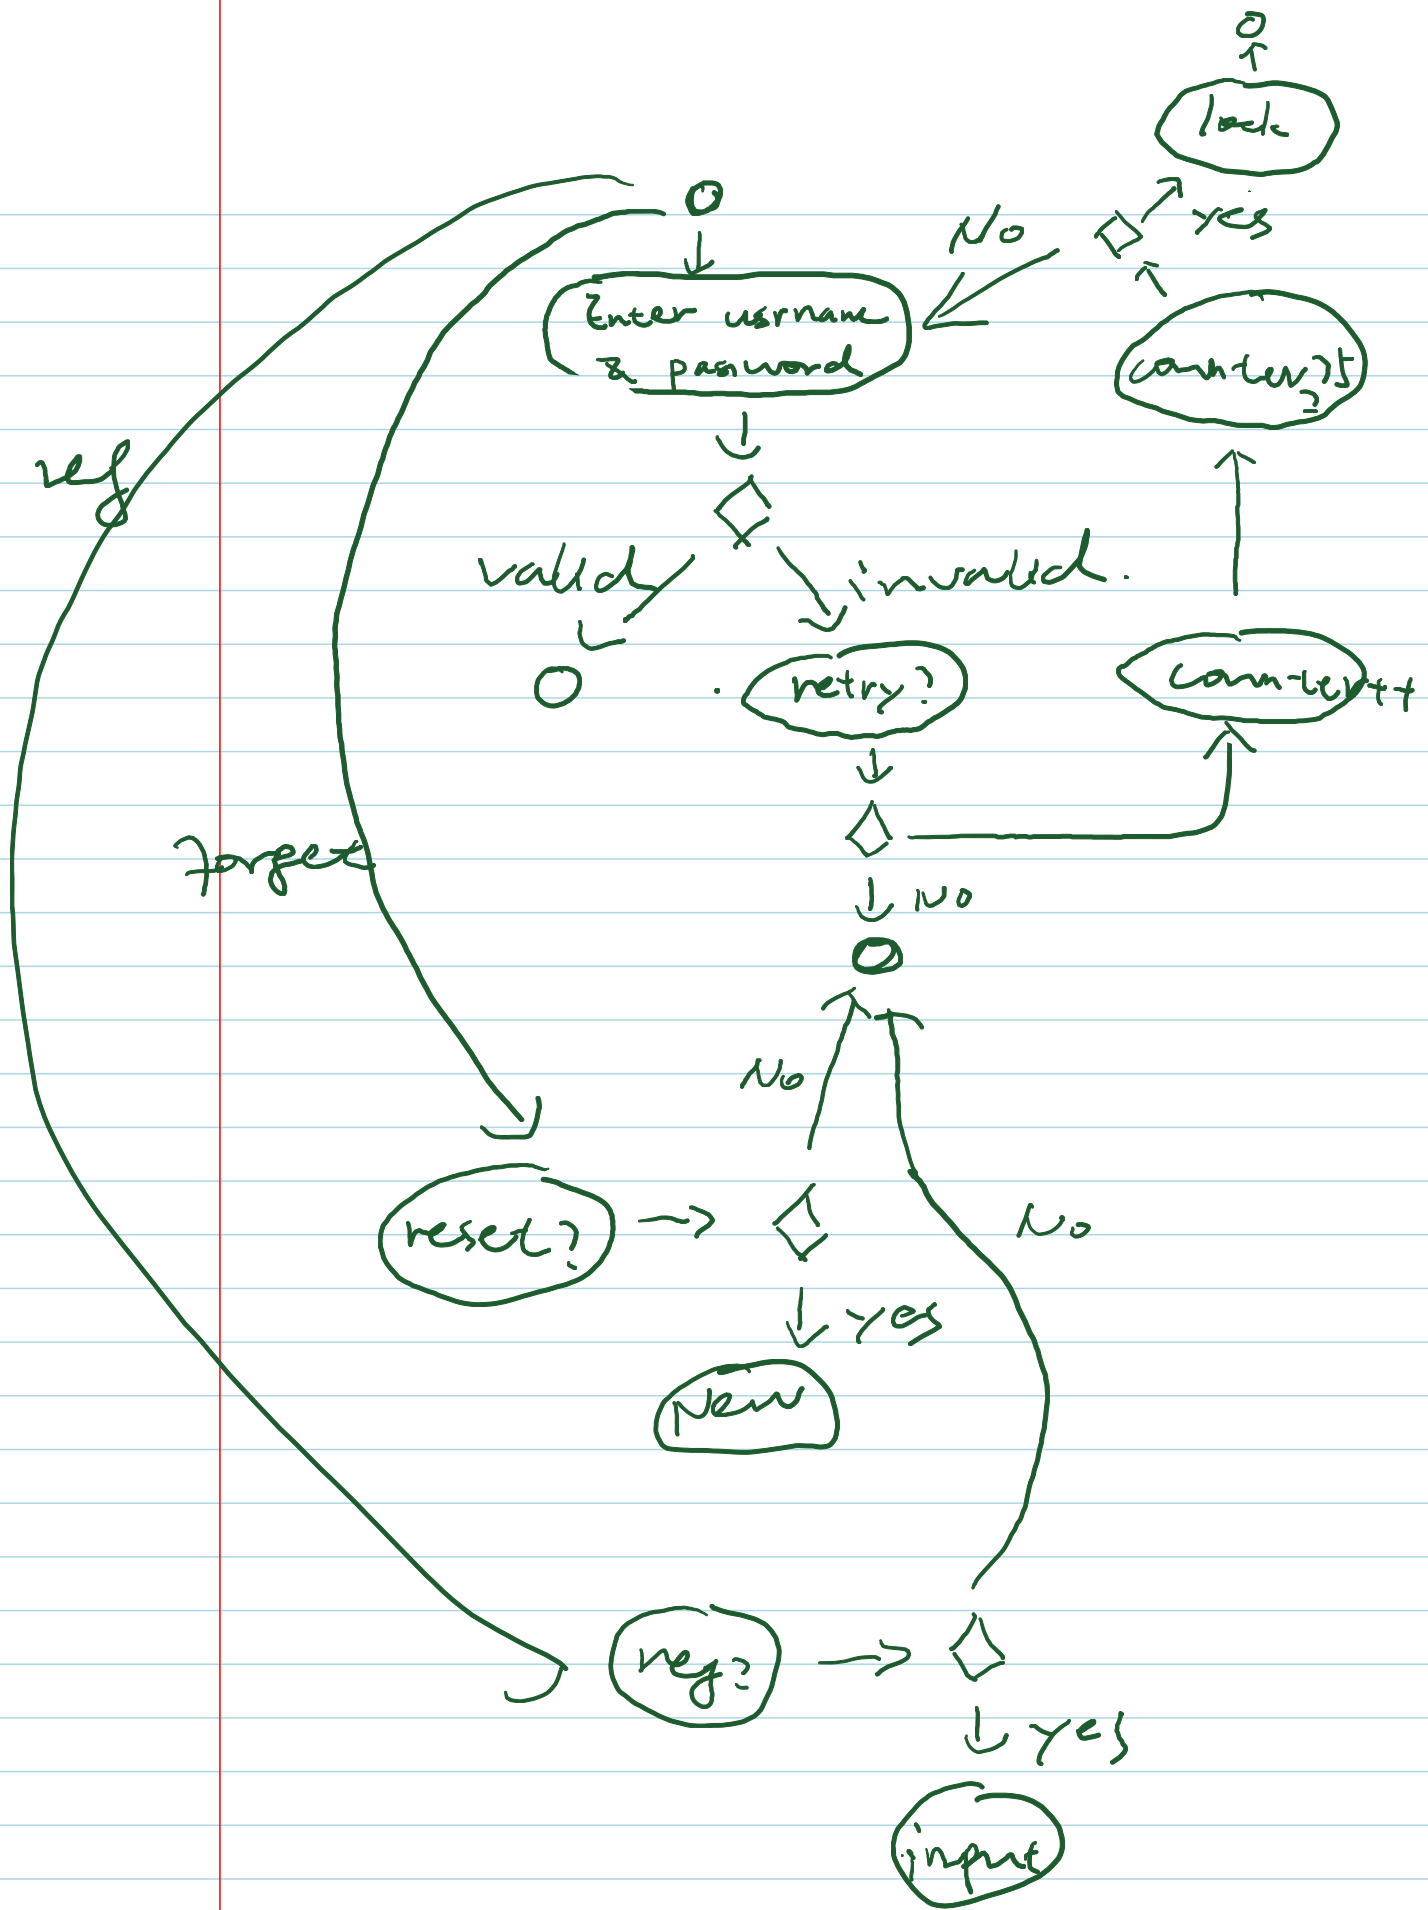 lock
Yes
No
Enter usrname
& password
counter>5
?
reg
valid
invalid.
retry?
counter++
forget
No
No
No
reset?
Yes
New
reg?
yes
input